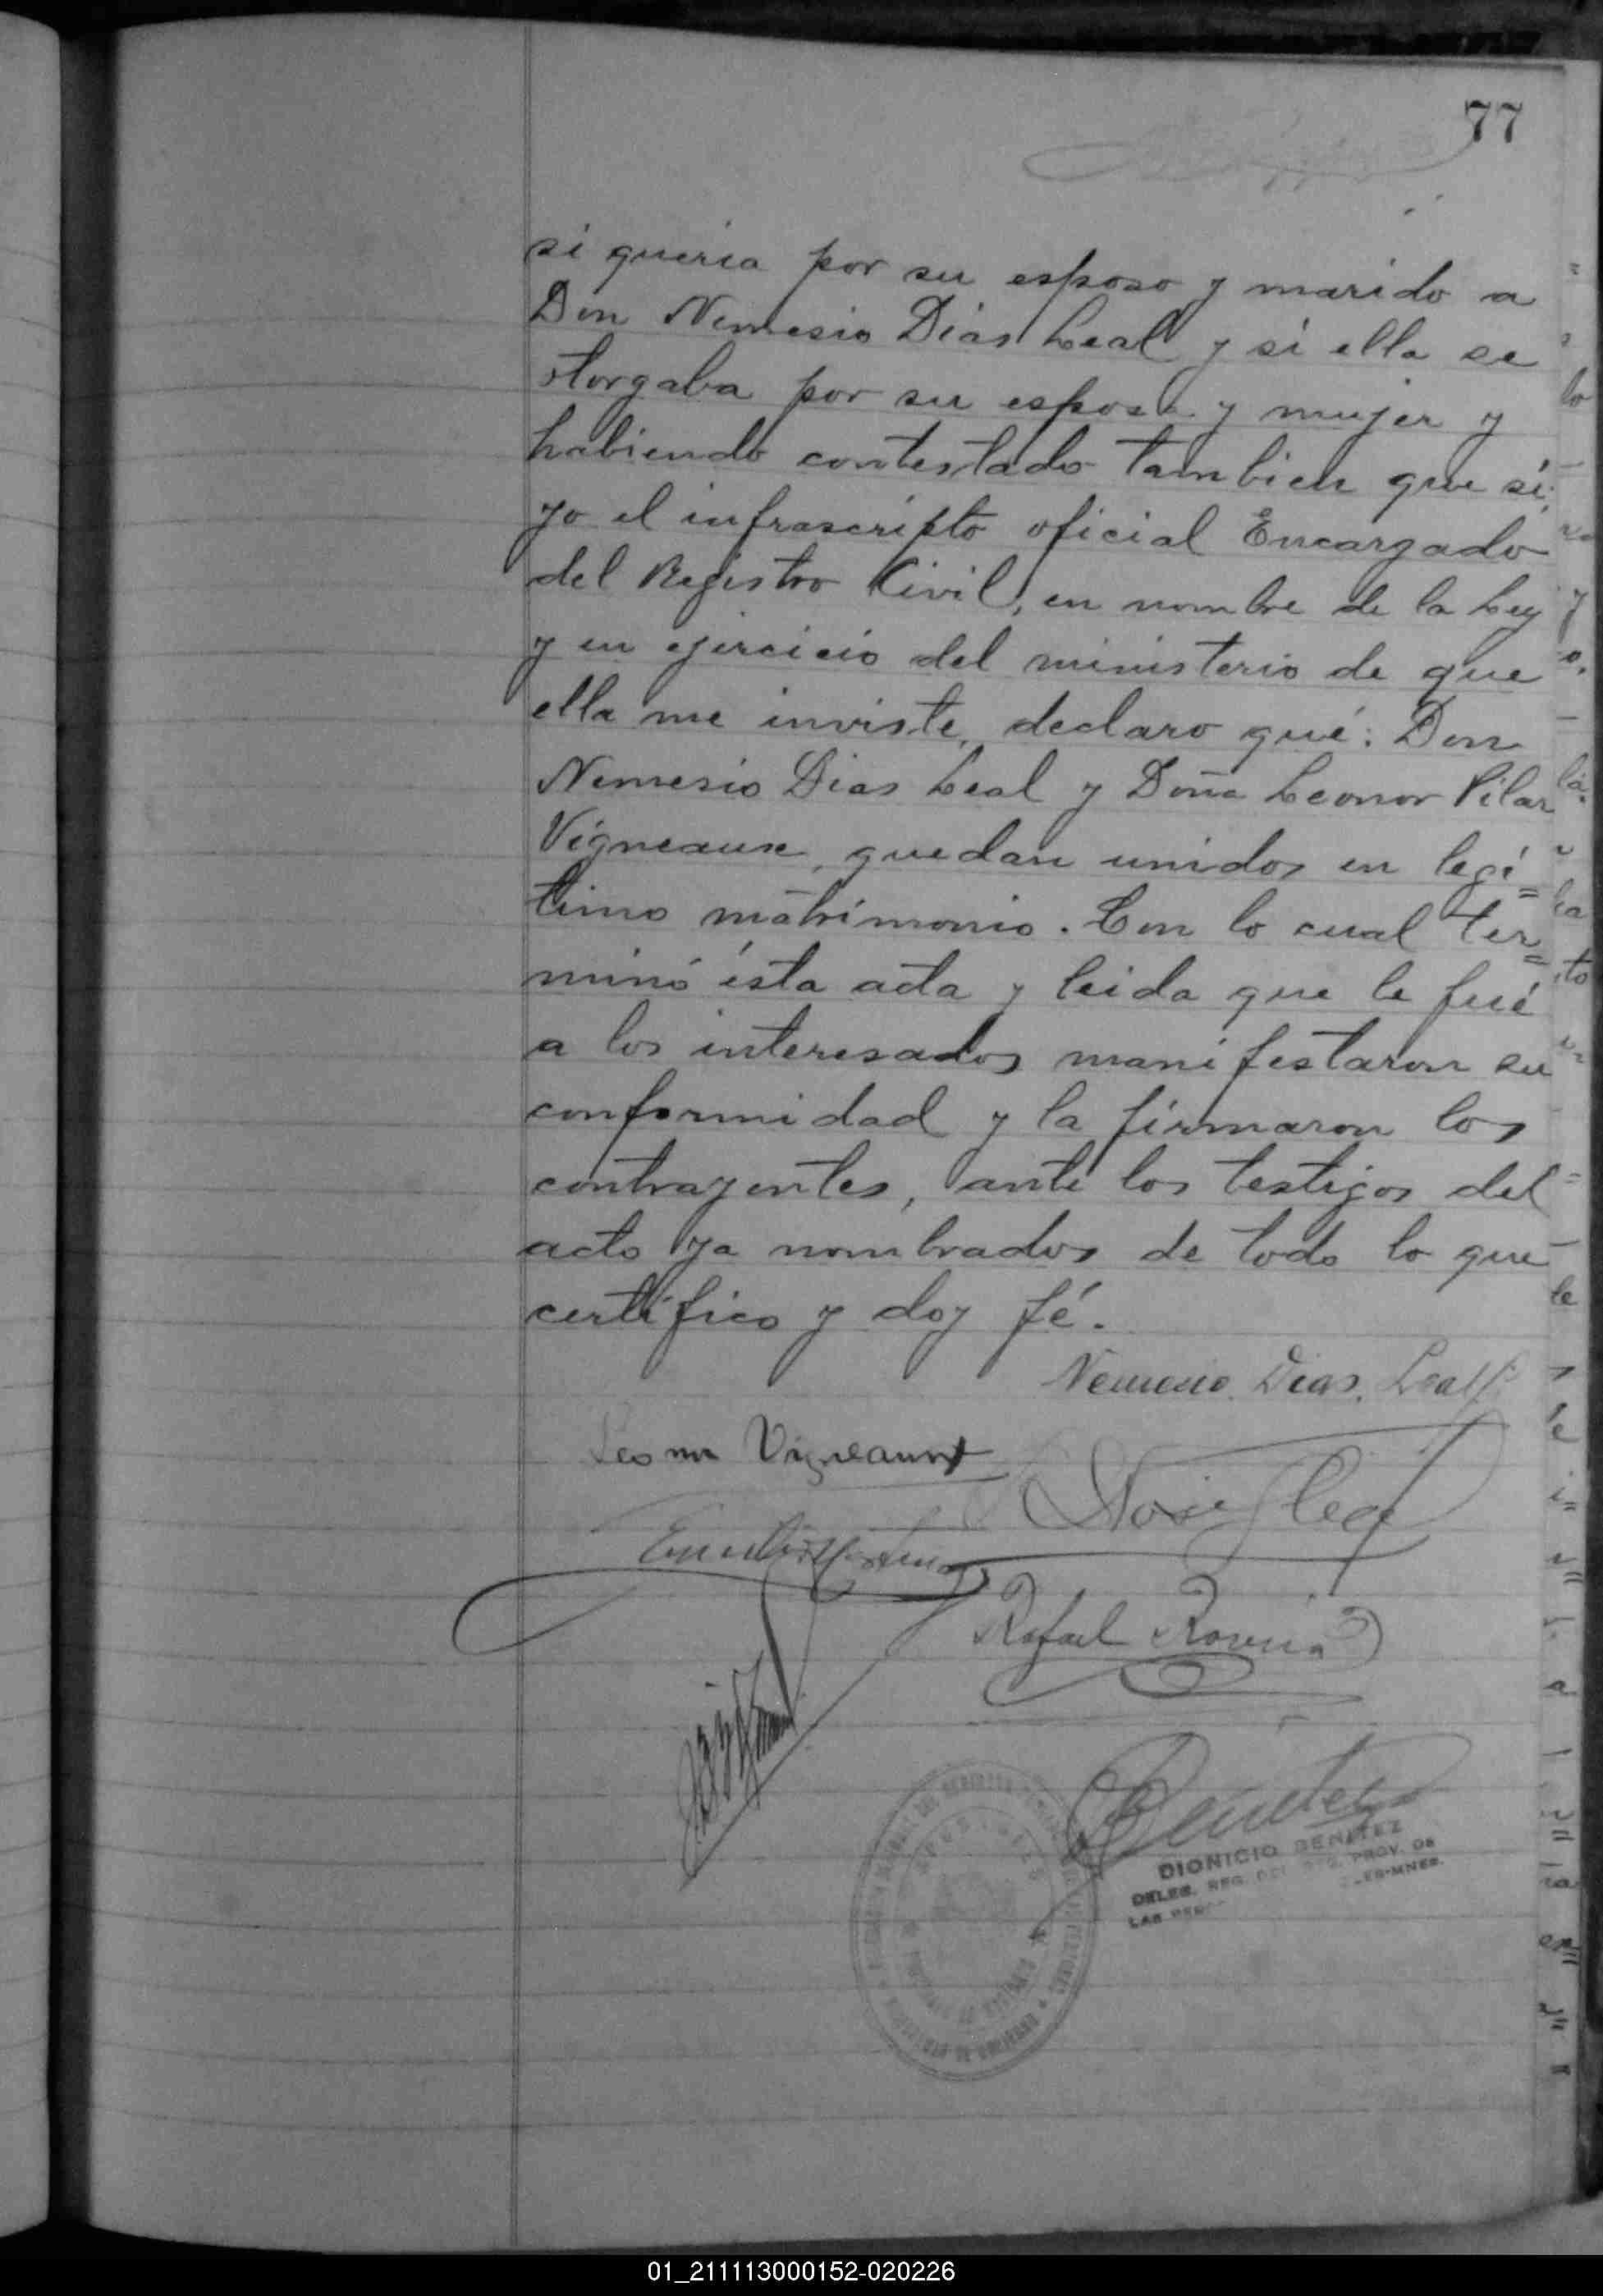 77
si queria por su esposo y marido a
Don Nemesio Dias Leal y si ella se
otorgaba por su esposa y mujer y
habiendo contestado tambien que si,
yo el infrascripto oficial Encargado
del Registro Civil, en nombre de la Ley
y en ejercicio del ministerio de que
ella me inviste, declaro qué: Don
Nemesio Dias Leal y Doña Leonor Pilar
Vigneaux, quedan unidos en legí=
timo matrimonio. Con lo cual ter=
minó ésta acta y leida que le fué
a los interesados manifestaron su
conformidad y la firmaron los
contrayentes, ante los testigos del
acto ya nombrados de todo lo que
certifico y doy fé.
Nemesio Dias Leal
Leonor Vigneaux
Rafael
Benitez
DIONICIO BENITEZ
DELEG. REG. PROV. DE
01_211113000152-020226